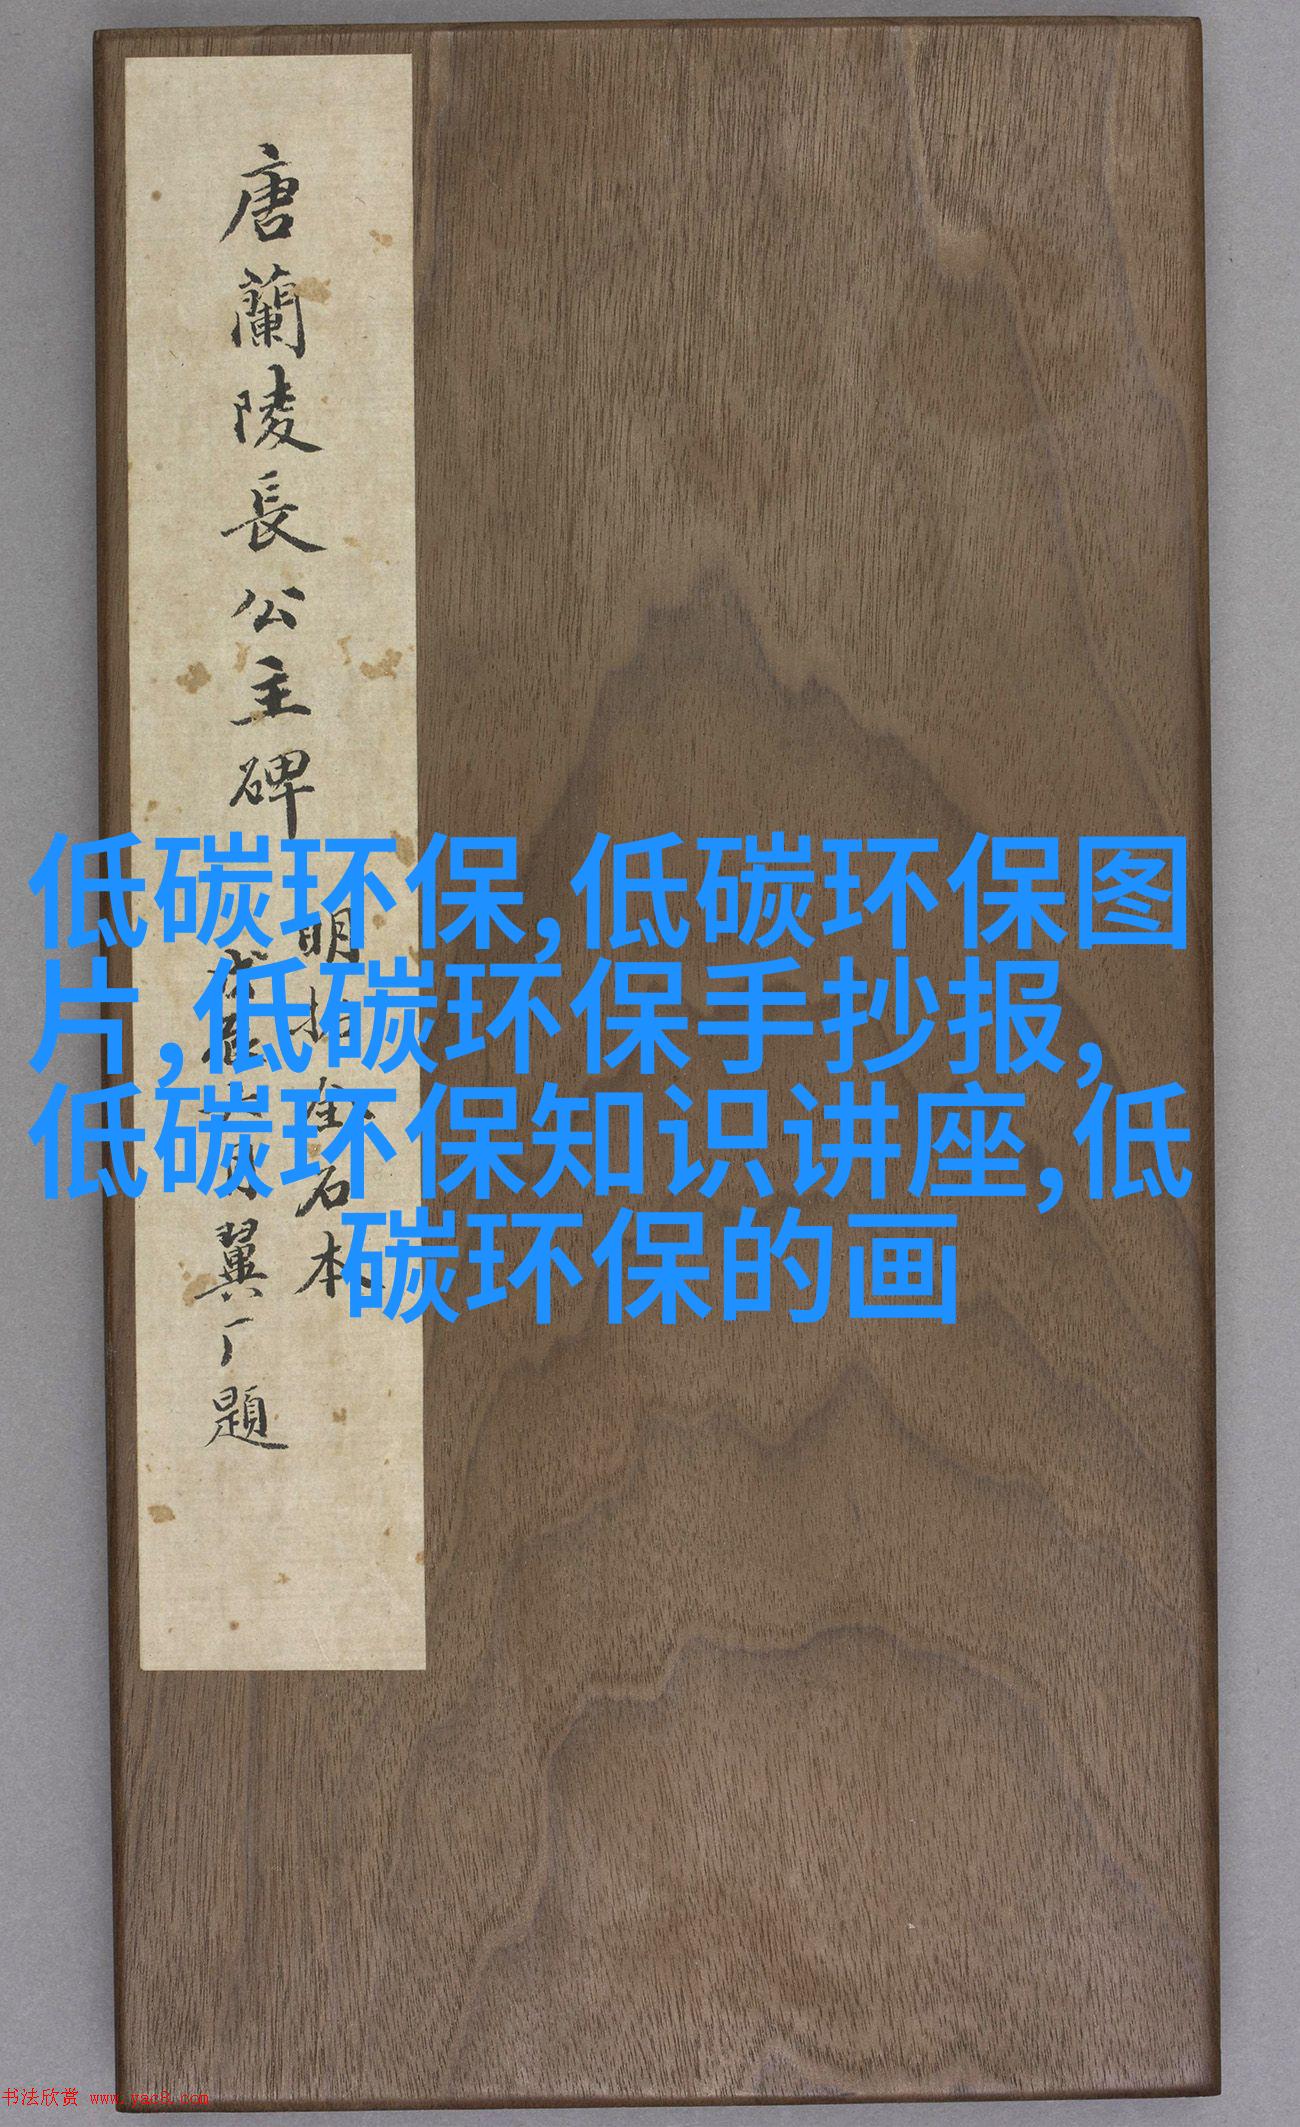 唐蘭陵長公主碑
明拓金石本
翼厂題
低碳环保,低碳环保图
片,低碳环保手抄报,
低碳环保知识讲座,低
碳环保的画
书法欣赏 www.yac8.com